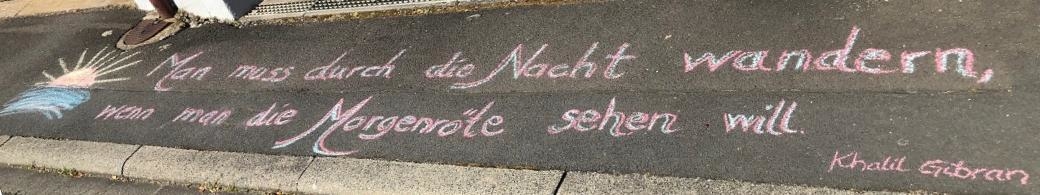 Man muss durch die Nacht wandern,
wenn man die Morgenröte sehen will.
Khalil Gibran